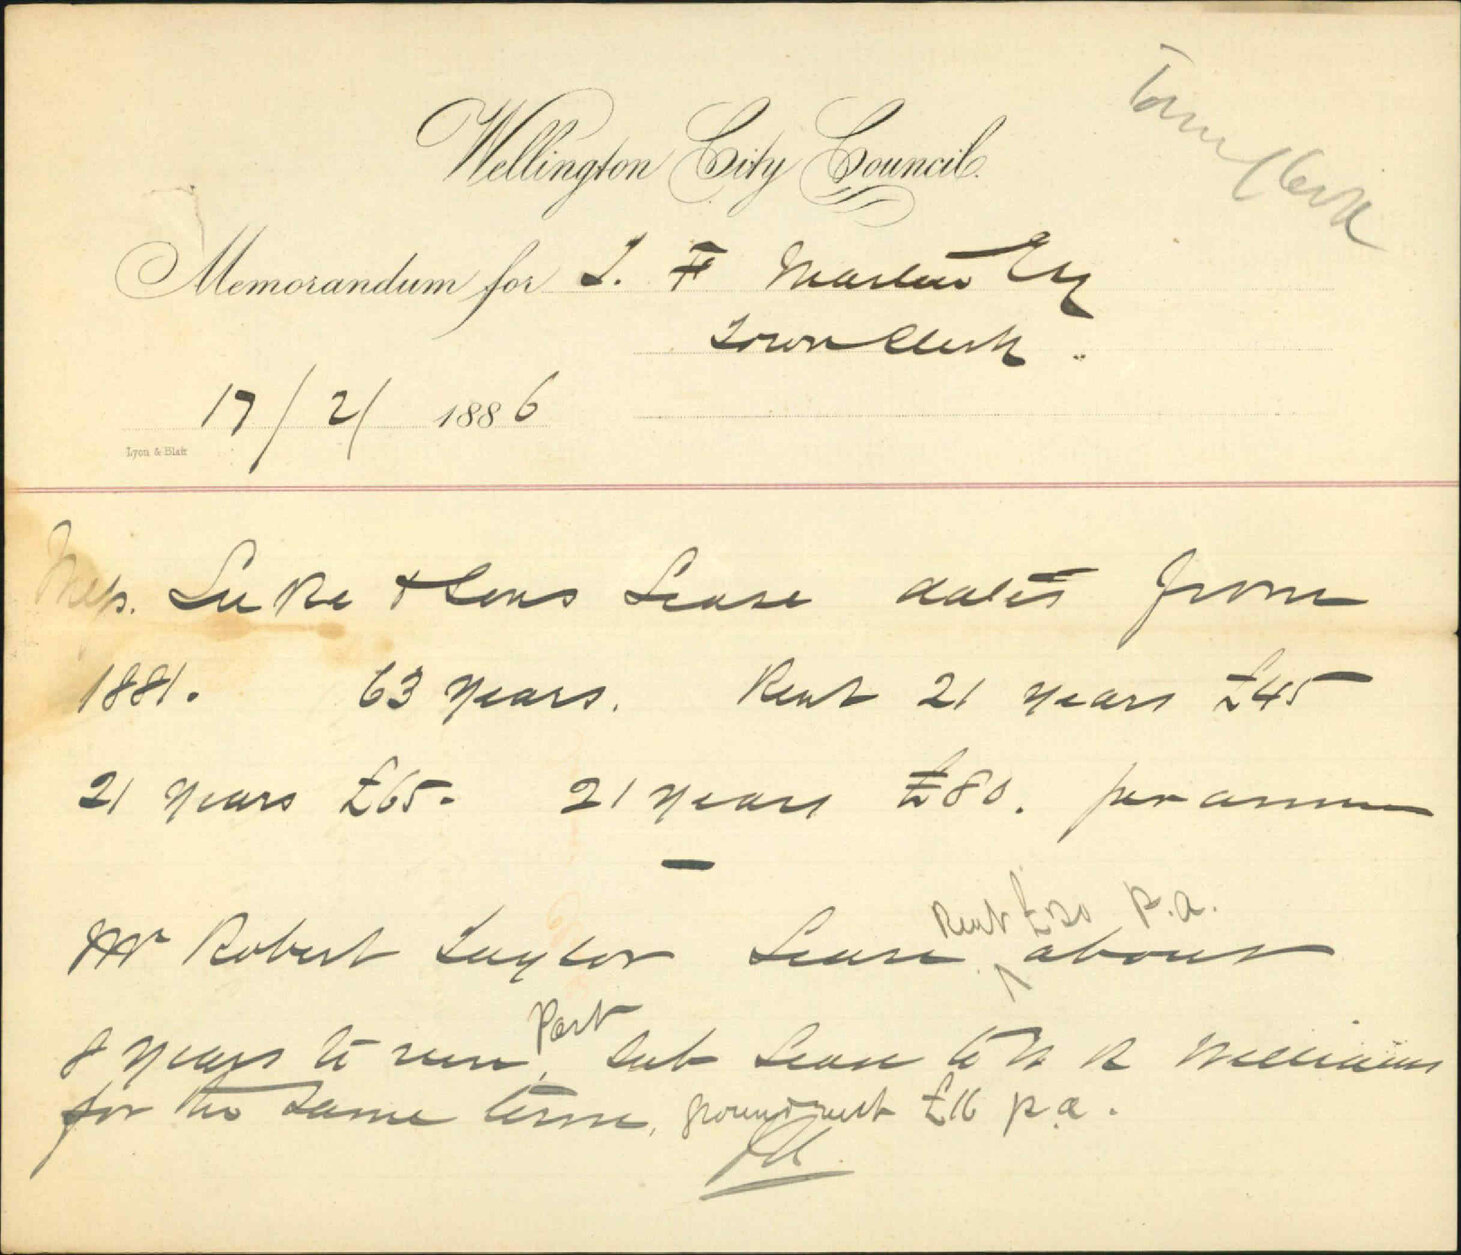 Town Clerk
Wellington City Council.
Memorandum for J. F Martin Esq
Town Clerk.
17/2/1886
Lyon & Blair
Mess. Luke & Sons Lease dates from
1881. 63 years. Rent 21 years £45
21 years £65. 21 years £80. per annum
Rent p.a.
Mr Robert Taylor Lease ^ about
Part
8 years to run, Sub Lease to W R Williams
for the same term, ground rent £16 p.a.